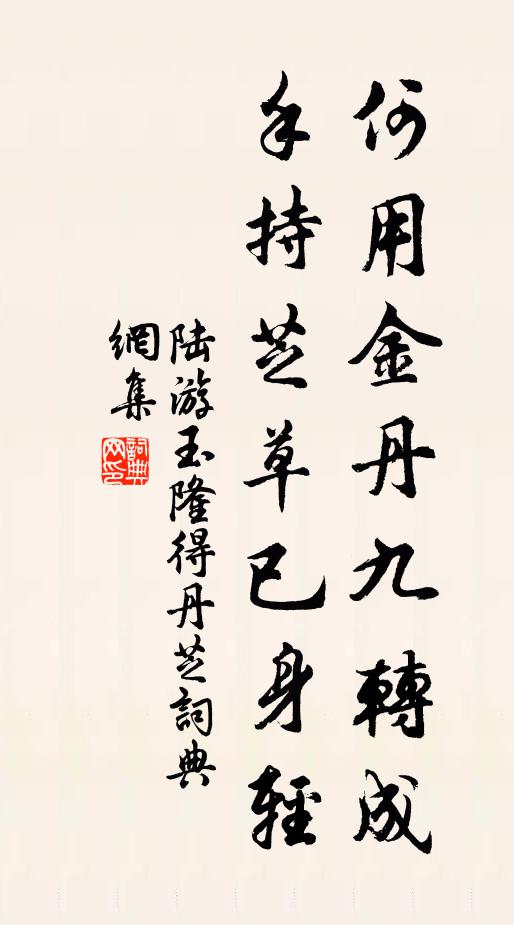 何用金丹九轉成
手持芝草已身輕
陸游玉隆得丹芝詞典
網集
詞典網印